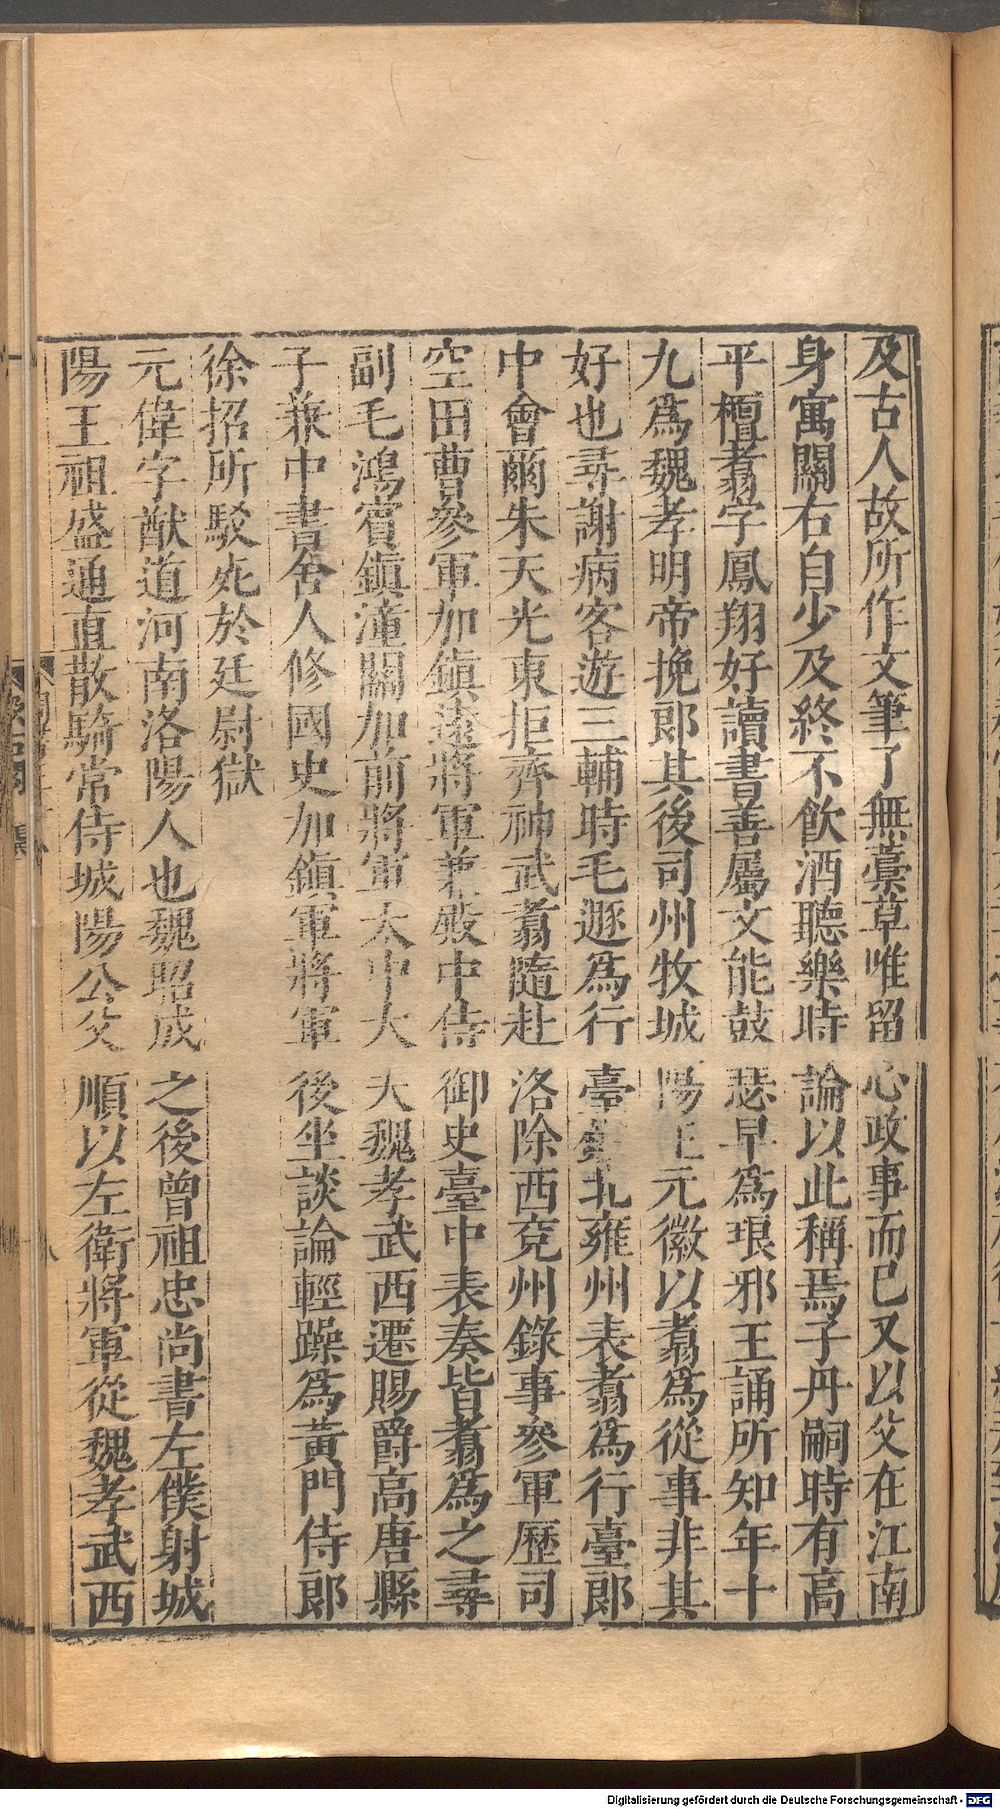 及古人故所作文筆了無藁草唯留心政事而已又以父在江南
身寓關右自少及終不飲酒聽樂時論以此稱焉子丹嗣時有高
平檀翥字鳳翔好讀書善屬文能鼓瑟早為琅邪王誦所知年十
九爲魏孝明帝挽郎其後司州牧城陽王元徽以翥爲從事非其
好也尋謝病客遊三輔時毛遐爲行臺鎮北雍州表翥爲行臺郎
中會爾朱天光東拒齊神武翥隨赴洛除西兗州錄事參軍歷司
空田曹參軍加鎮遠將軍兼殿中侍御史臺中表奏皆翥爲之尋
副毛鴻賓鎮潼關加前將軍太中大夫魏孝武西遷賜爵高唐縣
子兼中書舍人修國史加鎮軍將軍後坐談論輕躁爲黃門侍郎
徐招所駁死於廷尉獄
元偉字猷道河南洛陽人也魏昭成之後曾祖忠尚書左僕射城
陽王祖盛通直散騎常侍城陽公父順以左衛將軍從魏孝武西
Digitalisierung gefördert durch die Deutsche Forschungsgemeinschaft - DFG